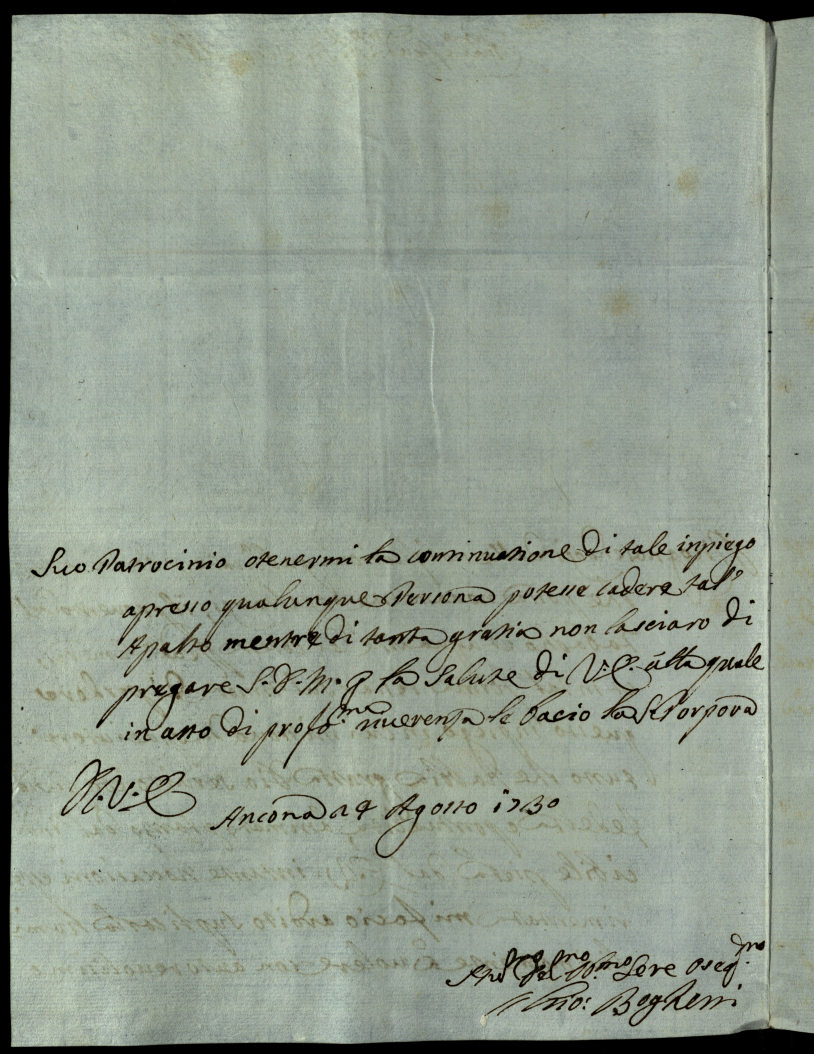 Suo Patrocinio otenermi la continuatione di tale inpiego
apresso qualunque Persona potesse cadere tal
Apalto mentre di tanta gratia non lasciaro di
pregare S. D. M. p la Salute di V. E. alla quale
in atto di profo.ma riverenza le bacio la S. Porpora
D. V. E.
Ancona a 4 Agosto 1730
Um.mo Ser.e Oseq.mo
Boghetti